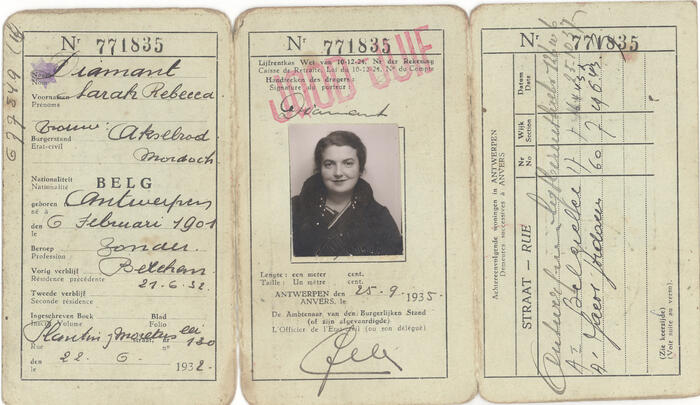 677349
Nr 771835
Naam
Nom
Diamant
Voornamen
Prénoms
Sarah Rebecca
Burgerstand
Etat-civil
vrouw Akselrod
Mordoch
Nationaliteit
Nationalité
BELG
geboren
né à
Antwerpen
den
le
6 Februari 1901
Beroep
Profession
Zonder
Vorig verblijf
Résidence précédente
Berchem
21.6.32.
Tweede verblijf
Seconde résidence
Ingeschreven Boek Blad
Inscrit Volume Folio
Straat, nr
Rue
130
den
le
22 6 1932.
Nr 771835
Lijfrentkas Wet van 10-12-24, Nr der Rekening
Caisse de Retraite, Loi du 10-12-24, No du Compte
JOOD-JUIF
Handteeken des dragers:
Signature du porteur:
Diamant
Lengte: een meter cent.
Taille: Un mètre cent.
ANTWERPEN den
ANVERS, le
25-9-1935.
De Ambtenaar van den Burgerlijken Stand
(of zijn afgevaardigde)
L'Officier de l'Etat civil (ou son délégué)
Nr 771835
Achtereenvolgende woningen in ANTWERPEN
Demeures successives à ANVERS
STRAAT — RUE
Nr
No
Wijk
Section
Datum
Date
Belgielei
Jacob Jordaens 60 7
(Zie keerzijde)
(Voir suite au verso)